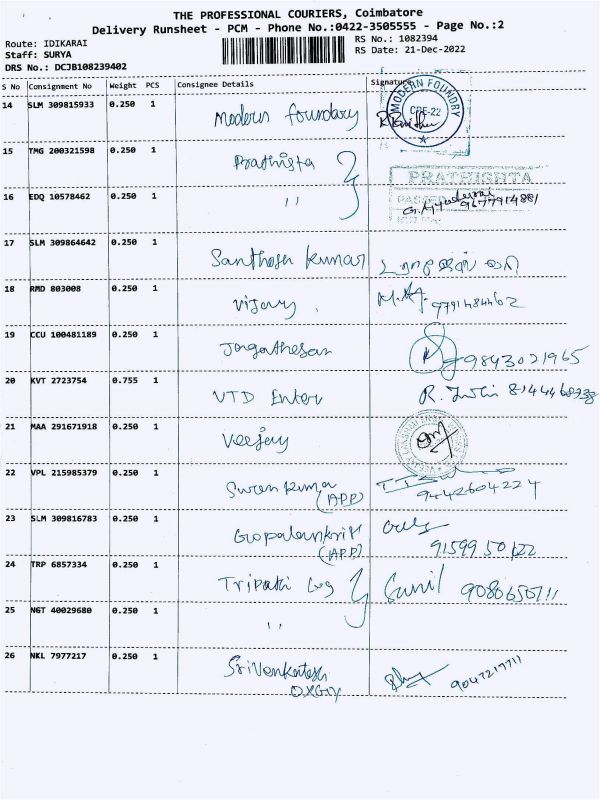 THE PROFESSIONAL COURIERS, Coimbatore
Delivery Runsheet - PCM - Phone No.:0422-3505555 - Page No.:2
Route: IDIKARAI
RS No.: 1082394
Staff: SURYA
RS Date: 21-Dec-2022
DRS No.: DCJB108239402
S No Consignment No Weight PCS Consignee Details Signature
14 SLM 309815933 0.250 1 Modern foundary
MODERN FOUNDRY
CBE-22
15 TMG 200321598 0.250 1 Prathista
PRATHISHTA
16 EDQ 10578462 0.250 1 ,,
9677914881
17 SLM 309864642 0.250 1 Santhosh kumar
18 RMD 803008 0.250 1 Vijay 9791484462
19 CCU 100481189 0.250 1 Jagatheesan 9843021965
20 KVT 2723754 0.755 1 VTD Enter R.
21 MAA 291671918 0.250 1 Veejay
22 VPL 215985379 0.250 1 Suren kumar
(APP) 9442604224
23 SLM 309816783 0.250 1 Gopalankrish
(APP) 9159950122
24 TRP 6857334 0.250 1 Tripati Log Sunil
25 NGT 40029680 0.250 1 ,,
26 NKL 7977217 0.250 1 Srivenkatesh
OXGN 9047217711